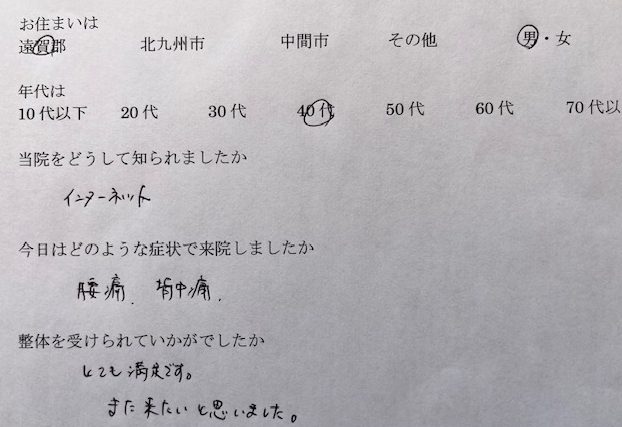 お住まいは
遠賀郡 北九州市 中間市 その他 男・女
年代は
10代以下 20代 30代 40代 50代 60代 70代以
当院をどうして知られましたか
インターネット
今日はどのような症状で来院しましたか
腰痛. 背中痛.
整体を受けられていかがでしたか
とても満足です。
また来たいと思いました。